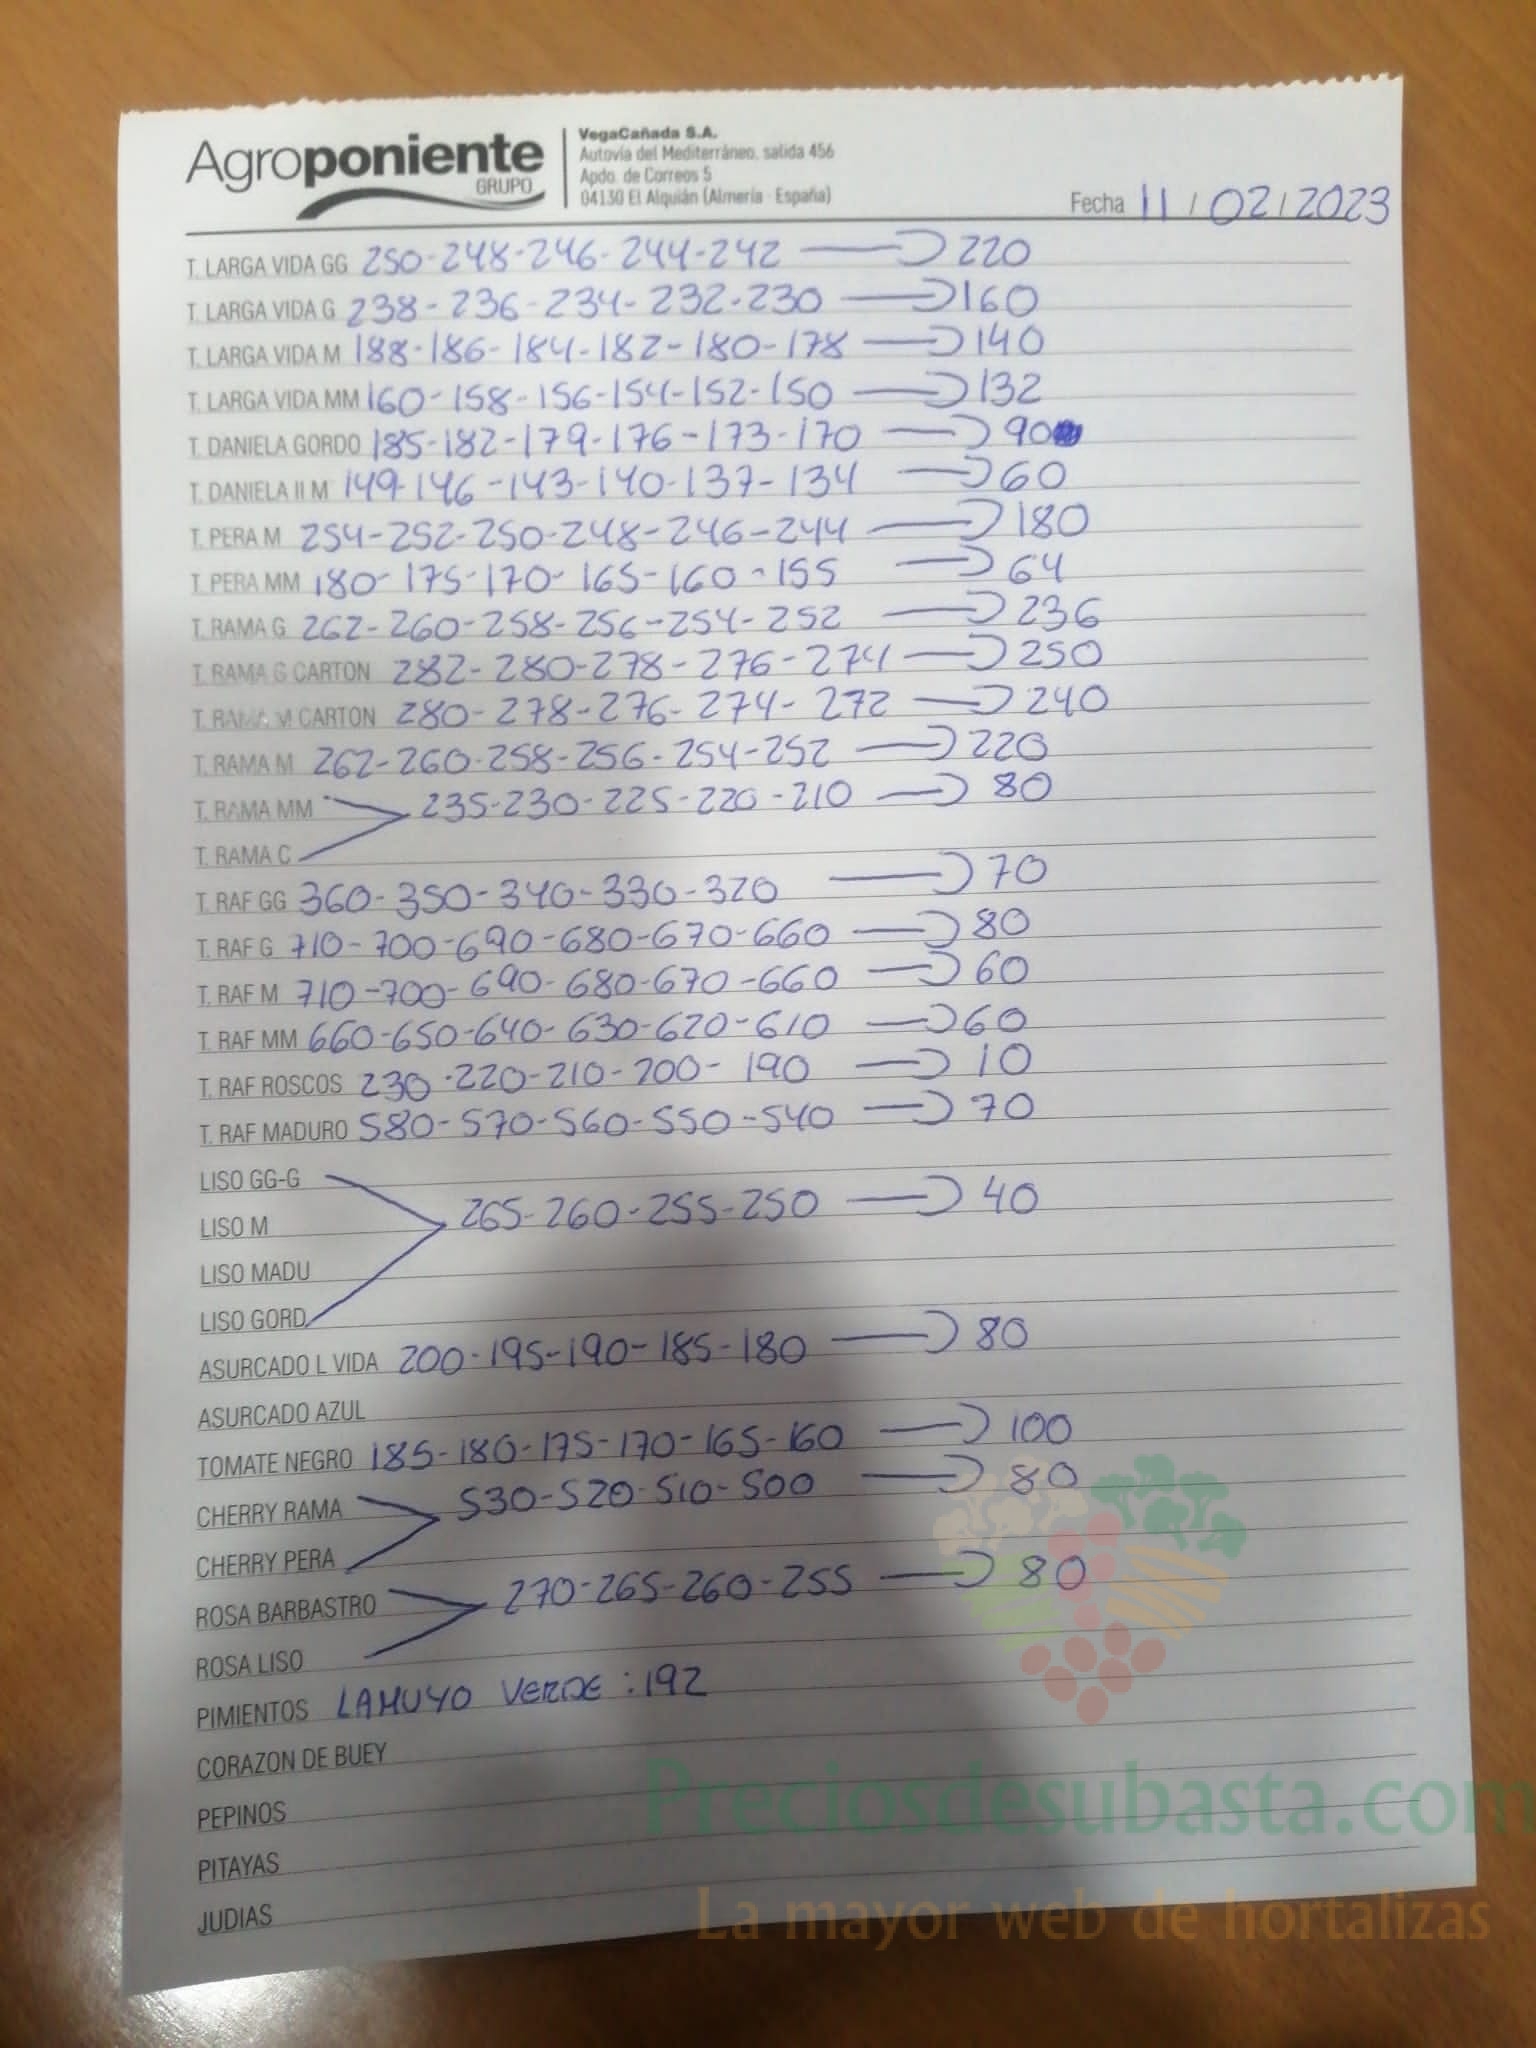 Agroponiente
GRUPO
VegaCañada S.A.
Autovía del Mediterráneo, salida 456
Apdo. de Correos 5
04130 El Alquián (Almería - España)
Fecha 11/02/2023
T. LARGA VIDA GG 250-248-246-244-242 220
T. LARGA VIDA G 238-236-234-232-230 160
T. LARGA VIDA M 188-186-184-182-180-178 140
T. LARGA VIDA MM 160-158-156-154-152-150 132
T. DANIELA GORDO 185-182-179-176-173-170 90
T. DANIELA II M 149-146-143-140-137-134 60
T. PERA M 254-252-250-248-246-244 180
T. PERA MM 180-175-170-165-160-155 64
T. RAMA G 262-260-258-256-254-252 236
T. RAMA G CARTON 282-280-278-276-274 250
T. RAMA M CARTON 280-278-276-274-272 240
T. RAMA M 262-260-258-256-254-252 220
T. RAMA MM 235-230-225-220-210 80
T. RAMA C
T. RAF GG 360-350-340-330-320 70
T. RAF G 710-700-690-680-670-660 80
T. RAF M 710-700-690-680-670-660 60
T. RAF MM 660-650-640-630-620-610 60
T. RAF ROSCOS 230-220-210-200-190 10
T. RAF MADURO 580-570-560-550-540 70
LISO GG-G
LISO M 265-260-255-250 40
LISO MADU
LISO GORD
ASURCADO L VIDA 200-195-190-185-180 80
ASURCADO AZUL
TOMATE NEGRO 185-180-175-170-165-160 100
CHERRY RAMA 530-520-510-500 80
CHERRY PERA
ROSA BARBASTRO 270-265-260-255 80
ROSA LISO
PIMIENTOS LAMUYO VERDE: 192
CORAZON DE BUEY
PEPINOS
PITAYAS
JUDIAS
Preciosdesubasta.com
La mayor web de hortalizas